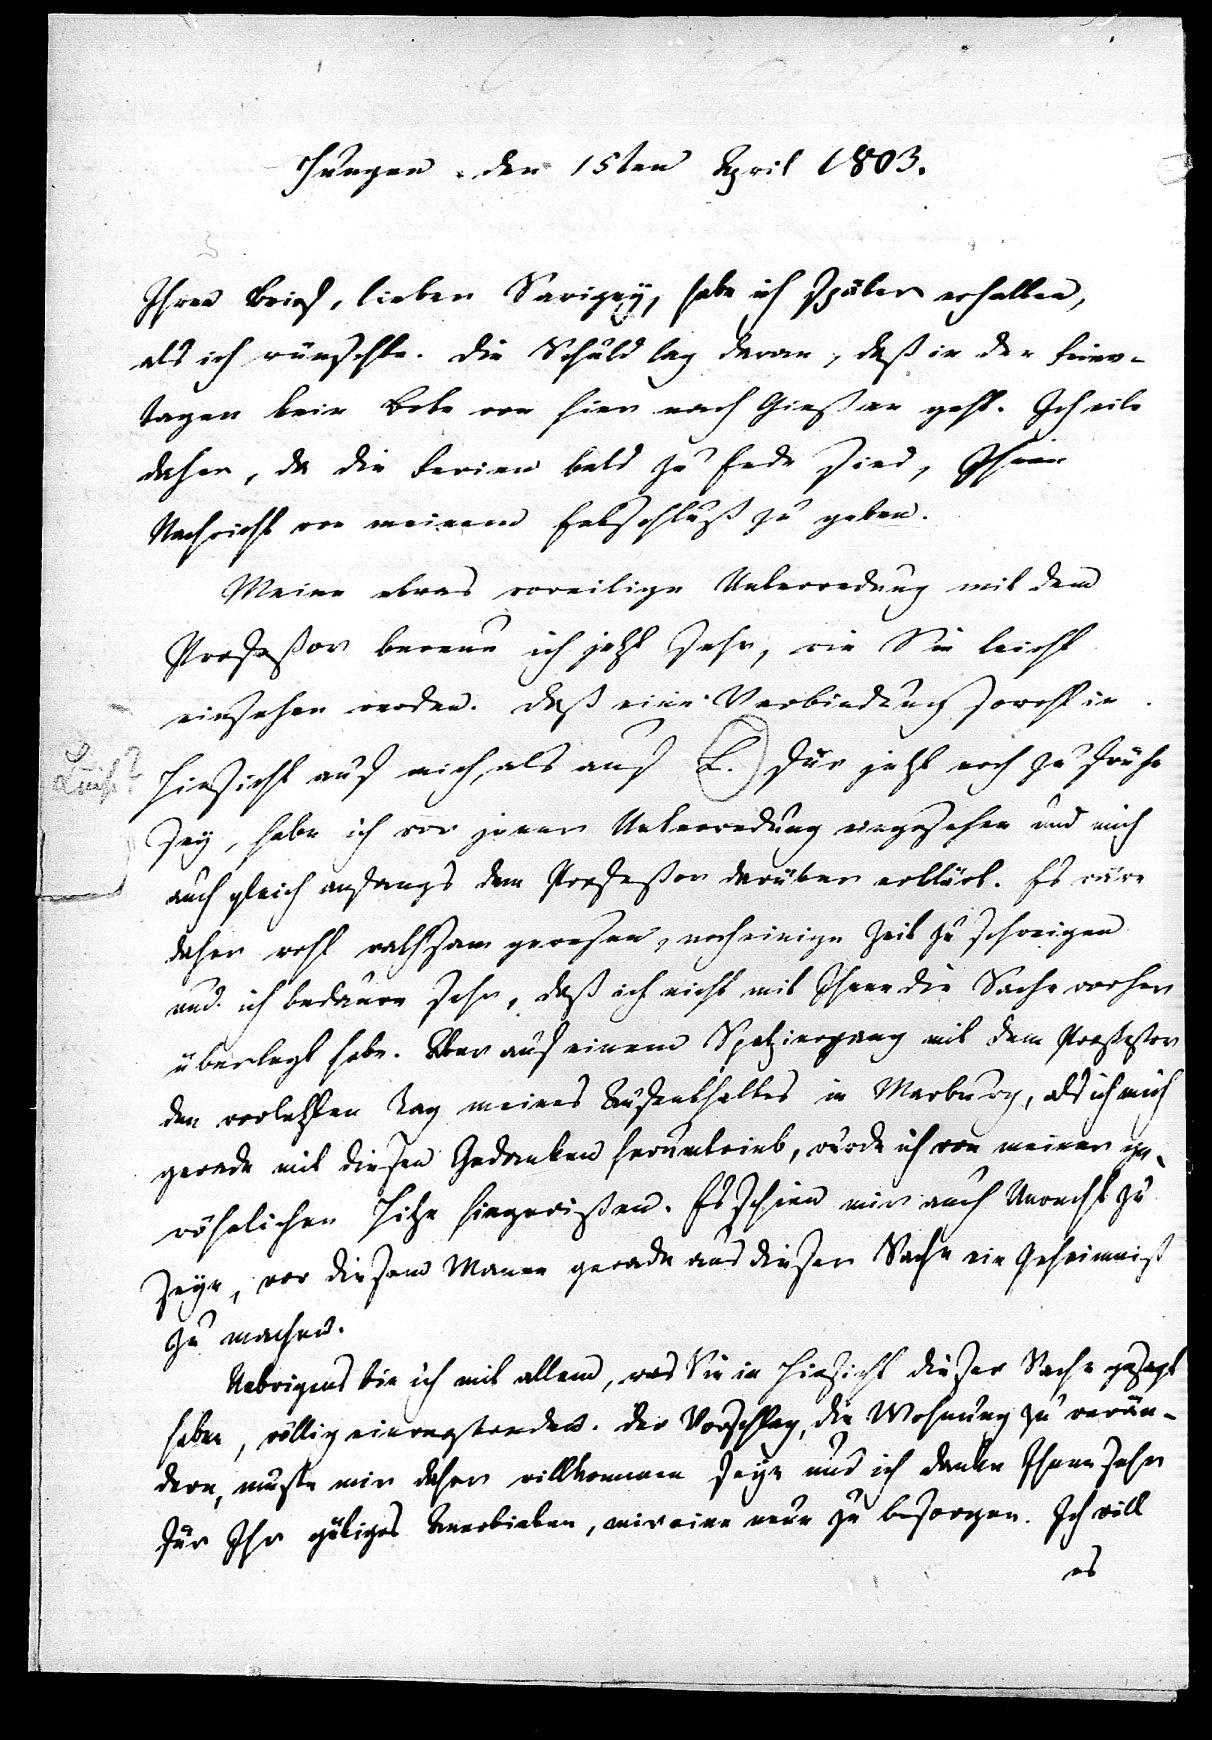 Hungen den 15ten April 1803.
Ihren Brief, lieber Savigny, habe ich später erhalten,
als ich wünschte. Die Schuld lag daran, daß in den Feier-
tagen kein Bote von hier nach Gießen geht. Ich eile
daher, da die Ferien bald zu Ende sind, Ihnen
Nachricht von meinem Entschluß zu geben.
Meine etwas voreilige Unterredung mit dem
Profeßor bereue ich jetzt sehr, wie Sie leicht
einsehen werden. Daß eine Verbindung sowohl in
Hinsicht auf mich, als auf L. für jetzt noch zu frühe
sey, habe ich vor jener Unterredung eingesehen und mich
auch gleich anfangs dem Profeßor darüber erklärt. Es wäre
daher wohl rathsam gewesen, noch einige Zeit zu schweigen
und ich bedaure sehr, daß ich nicht mit Ihnen die Sache vorher
überlegt habe. Aber auf einem Spatziergang mit dem Profeßor
den vorletzten Tag meines Aufenthaltes in Marburg, als ich mich
gerade mit diesen Gedanken herumtrieb, wurde ich von meiner ge-
wöhnlichen Hitze hingerißen. Es schien mir auch Unrecht zu
seyn, vor diesem Manne gerade aus dieser Sache ein Geheimniß
zu machen.
Uebrigens bin ich mit allem, was Sie in Hinsicht dieser Sache gesagt
haben, völlig einverstanden. Der Vorschlag, die Wohnung zu verän-
dern, mußte mir daher willkommen seyn und ich danke Ihnen sehr
für Ihr gütiges Anerbieten, mir eine neue zu besorgen. Ich will
es